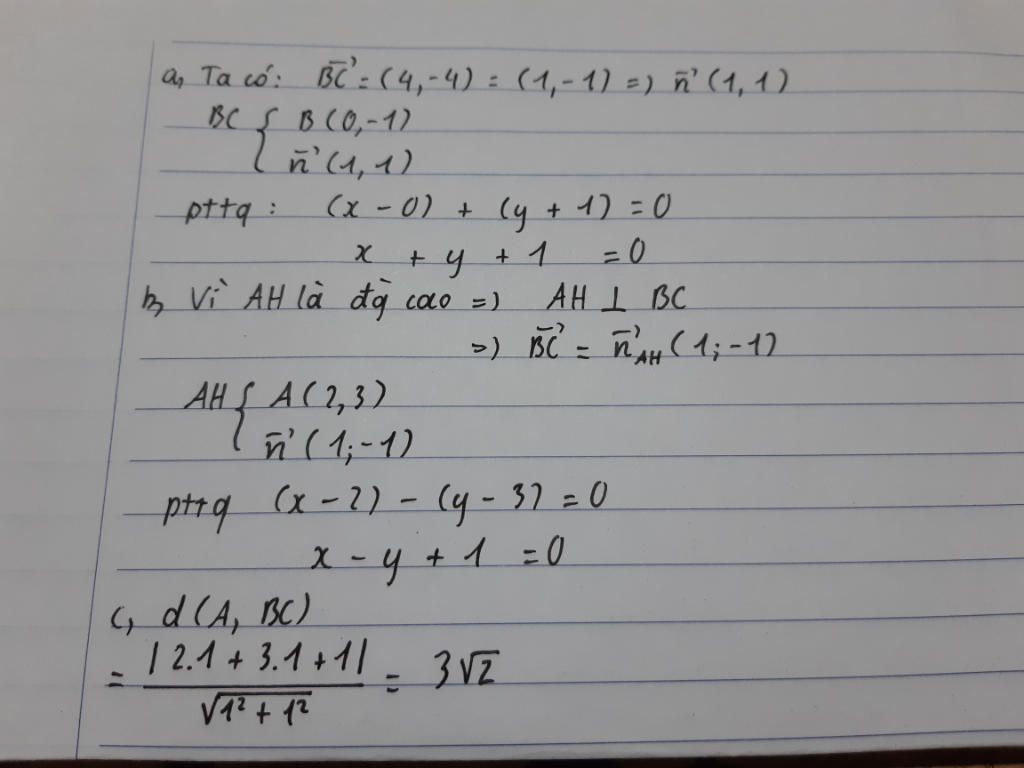 a, Ta có: BC→ = (4,-4) = (1,-1) => n→ (1,1)
BC { B(0,-1)
n→ (1,1)
pttq : (x - 0) + (y + 1) = 0
x + y + 1 = 0
b, Vì AH là đg̀ cao => AH ⊥ BC
=> BC→ = n→AH (1;-1)
AH { A(2,3)
n→ (1;-1)
pttq (x - 2) - (y - 3) = 0
x - y + 1 = 0
c, d(A, BC)
= |2.1 + 3.1 + 1| / √1² + 1² = 3√2